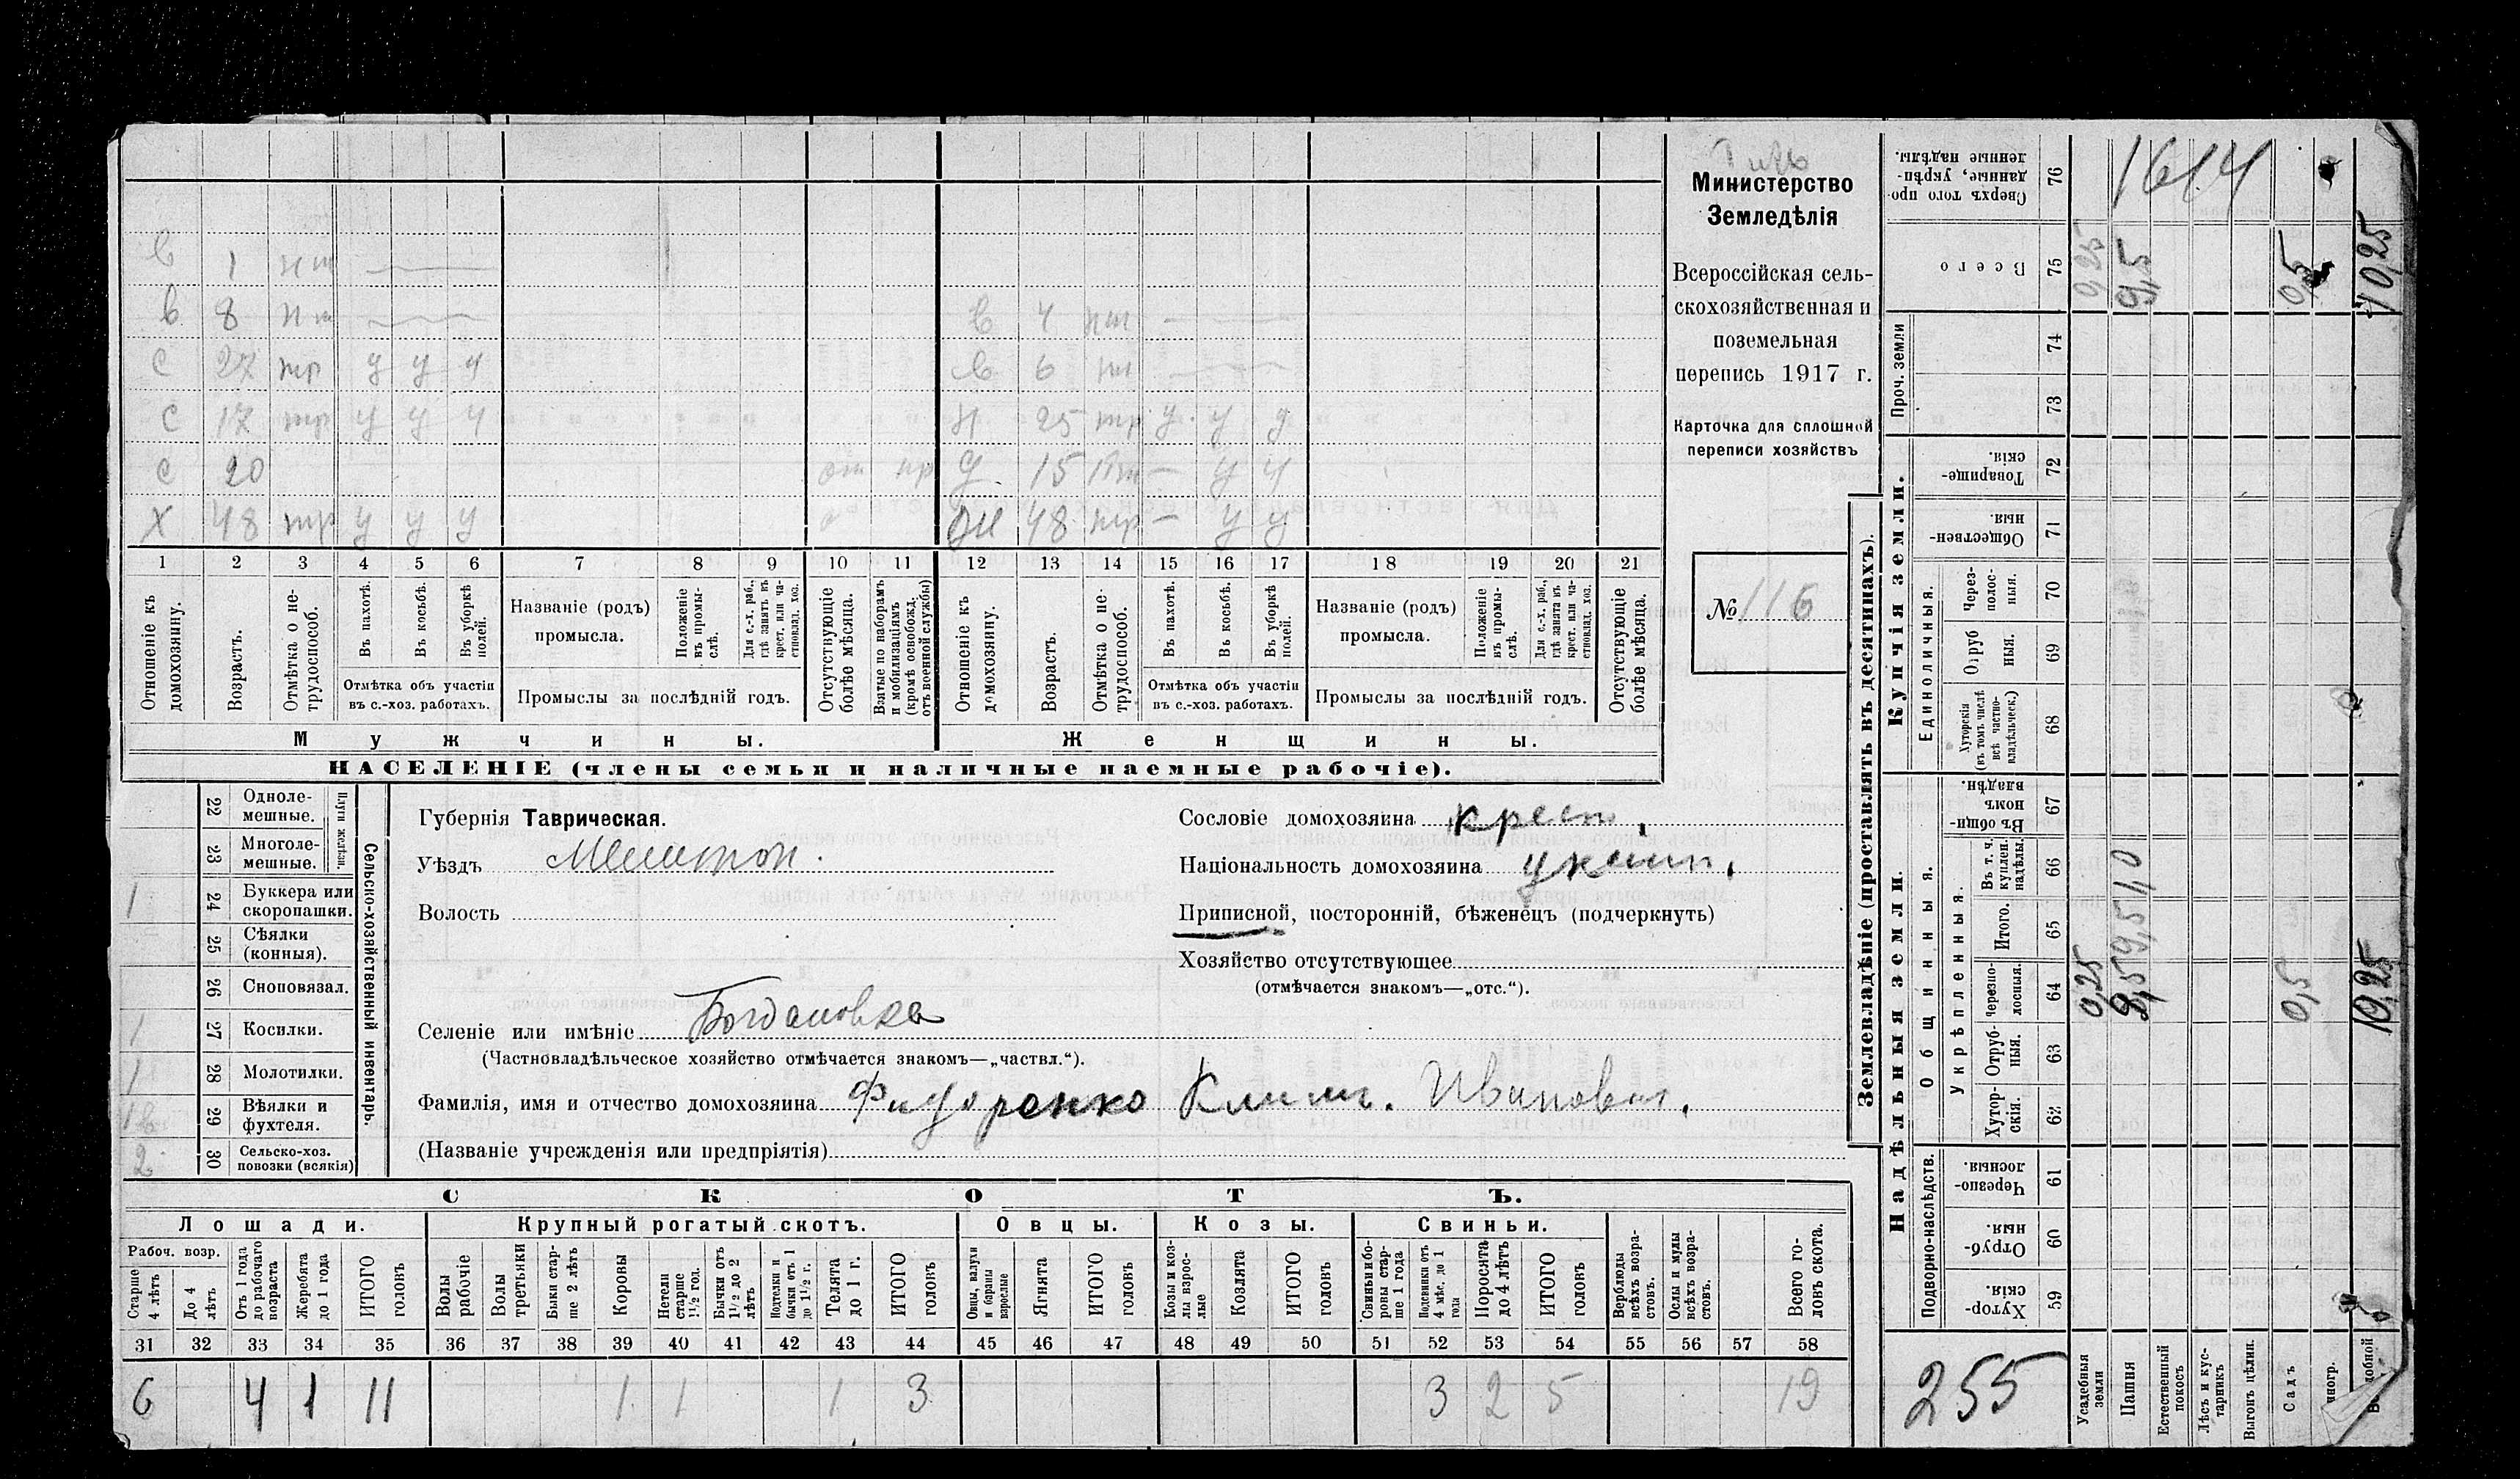 Министерство
Земледѣлія
Всероссійская сель-
скохозяйственная и
поземельная
перепись 1917 г.
Карточка для сплошной
переписи хозяйствъ
№ 116
в 1 нт
в 8 нт
с 27 тр у у у
с 17 тр у у у
с 20 от пр
х 48 тр у у у
в 4 нт —
в 6 нт —
н 25 тр у. у у
д. 15 пт — у у
ж 48 тр — у у
1 2 3 4 5 6 7 8 9 10 11 12 13 14 15 16 17 18 19 20 21
Отношеніе къ домохозяину.
Возрастъ.
Отмѣтка о не-трудоспособ.
Въ пахотѣ.
Въ косьбѣ.
Въ уборкѣ полей.
Отмѣтка объ участіи въ с.-хоз. работахъ.
Названіе (родъ) промысла.
Положеніе въ промы-слѣ.
Для с.-х. раб., гдѣ занятъ въ крест. или ча-стновлад. хоз.
Промыслы за послѣдній годъ.
Отсутствующіе болѣе мѣсяца.
Взятые по наборамъ и мобилизаціямъ (кромѣ освобожд. отъ военной службы)
Отношеніе къ домохозяину.
Возрастъ.
Отмѣтка о не-трудоспособ.
Въ пахотѣ.
Въ косьбѣ.
Въ уборкѣ полей.
Отмѣтка объ участіи въ с.-хоз. работахъ.
Названіе (родъ) промысла.
Положеніе въ промы-слѣ.
Для с.-х. раб., гдѣ занята въ крест. или ча-стновлад. хоз.
Промыслы за послѣдній годъ.
Отсутствующіе болѣе мѣсяца.
Мужчины. Женщины.
НАСЕЛЕНІЕ (члены семьи и наличные наемные рабочіе).
Сельско-хозяйственный инвентарь.
Плуги желѣзн.
22 Одноле-мешные.
23 Многоле-мешные.
1 24 Буккера или скоропашки.
25 Сѣялки (конныя).
26 Сноповязал.
1 27 Косилки.
1 28 Молотилки.
29 Вѣялки и фухтеля.
2 30 Сельско-хоз. повозки (всякія)
Губернія Таврическая.
Уѣздъ Мелитоп.
Волость
Селеніе или имѣніе Богдановка
(Частновладѣльческое хозяйство отмѣчается знакомъ—„частвл.“).
Фамилія, имя и отчество домохозяина Фидоренко Клим. Иванович.
(Названіе учрежденія или предпріятія)
Сословіе домохозяина крест.
Національность домохозяина украин.
Приписной, посторонній, бѣженецъ (подчеркнуть)
Хозяйство отсутствующее
(отмѣчается знакомъ—„отс.“).
СКОТЪ.
Лошади. Крупный рогатый скотъ. Овцы. Козы. Свиньи.
Рабоч. возр.
Старше 4 лѣтъ
До 4 лѣтъ
Отъ 1 года до рабочаго возраста
Жеребята до 1 года
ИТОГО головъ
Волы рабочіе
Волы третьяки
Быки стар-ше 2 лѣтъ
Коровы
Нетели старше 1½ год.
Бычки отъ 1½ до 2 лѣтъ
Подтелки и бычки отъ 1 до 1½ г.
Телята до 1 г.
ИТОГО головъ
Овцы, валухи и бараны взрослые
Ягнята
ИТОГО головъ
Козы и коз-лы взрос-лые
Козлята
ИТОГО головъ
Свиньи и бо-ровы стар-ше 1 года
Подсвинки отъ 4 мѣс. до 1 года
Поросята до 4 лѣтъ
ИТОГО головъ
Верблюды всѣхъ возра-стовъ.
Ослы и мулы всѣхъ возра-стовъ.
Всего го-ловъ скота.
31 32 33 34 35 36 37 38 39 40 41 42 43 44 45 46 47 48 49 50 51 52 53 54 55 56 57 58
6 4 1 11 1 1 1 3 3 2 5 19
Землевладѣніе (проставлять въ десятинахъ).
Купчія земли.
Надѣльныя земли.
76 Сверхъ того про-данные, укрѣп-ленные надѣлы.
1614
75 Всего
0,25 9,5 0,5 10,25
Проч. земли
74
73
72 Товарище-скія.
71 Обществен-ныя.
Единоличныя.
70 Через-полос-ныя.
69 Отруб ныя.
68 Хуторскія (въ томъ числѣ всѣ частно-владѣльческ.)
Общинныя.
67 Въ общи-номъ владѣн.
Укрѣпленныя.
66 Въ т. ч. куплен. надѣлы.
65 Итого.
64 Черезпо-лосныя.
0,25 9,5 0,5 10,25
63 Отруб-ныя.
62 Хутор-скія.
Подворно-наслѣдств.
61 Черезпо-лосныя.
60 Отруб-ныя.
59 Хутор-скія.
255
Усадебныя земли
Пашня
Естественный покосъ
Лѣсъ и кус-тарникъ
Выгонъ цѣлин.
Садъ